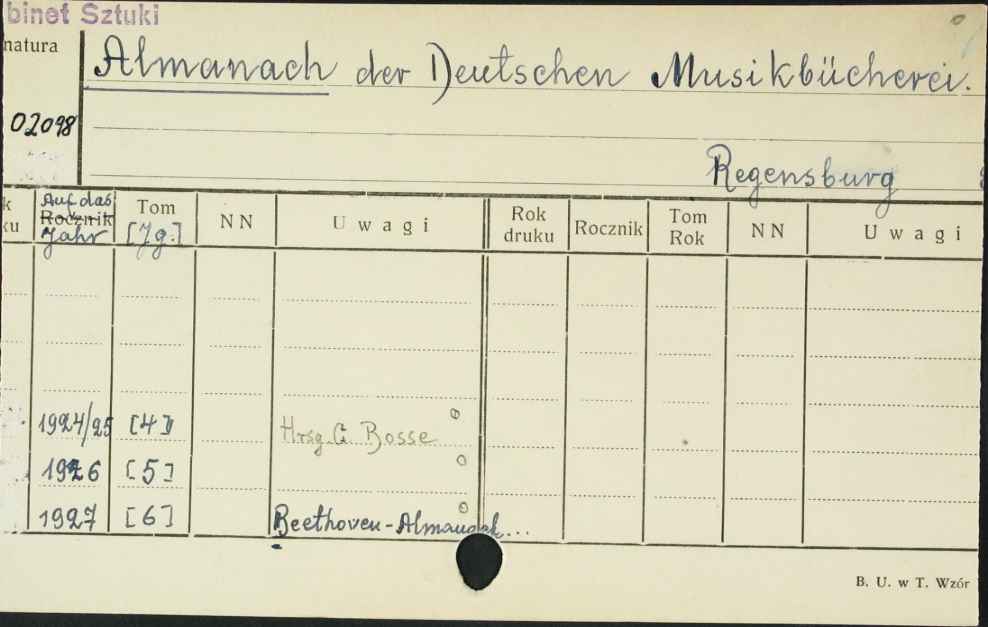 binet Sztuki
natura
Almanach der Deutschen Musikbücherei.
02098
Regensburg
k
ku
Auf das
Rocznik
Jahr
Tom
[Jg.]
NN
Uwagi
Rok
druku
Rocznik
Tom
Rok
NN
Uwagi
1924/25 [4] Hrsg. G. Bosse
1926 [5]
1927 [6] Beethoven-Almanach...
B. U. w T. Wzór